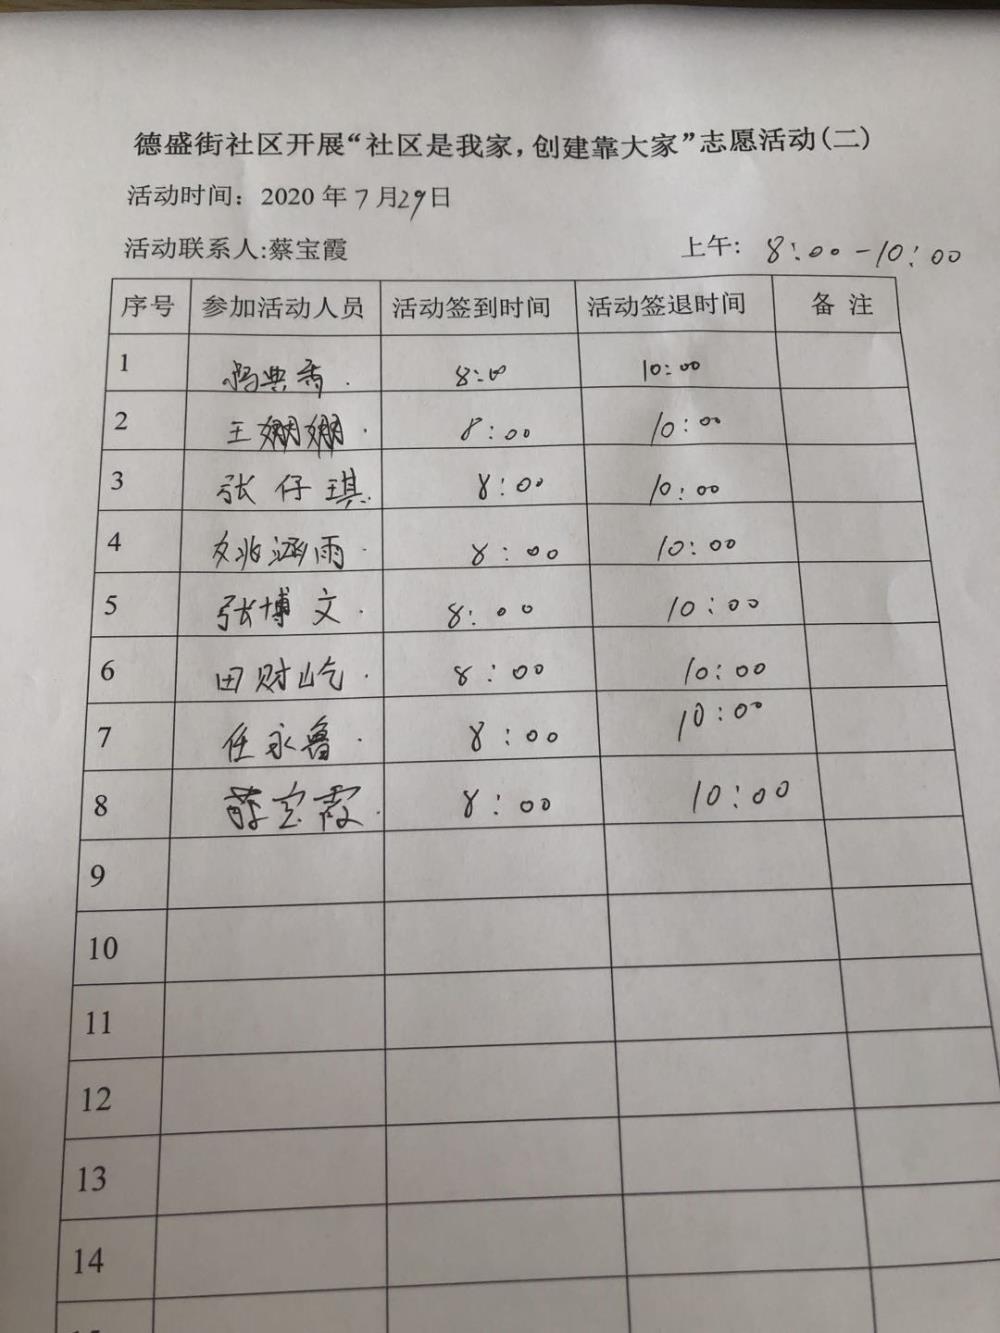 德盛街社区开展“社区是我家，创建靠大家”志愿活动(二)
活动时间：2020年7月29日
活动联系人:蔡宝霞 上午：8:00-10:00
序号 参加活动人员 活动签到时间 活动签退时间 备注
1 8:00 10:00
2 王姗姗 8:00 10:00
3 张仔琪 8:00 10:00
4 姚涵雨 8:00 10:00
5 张博文 8:00 10:00
6 田财屹 8:00 10:00
7 任永鲁 8:00 10:00
8 薛宝霞 8:00 10:00
9
10
11
12
13
14